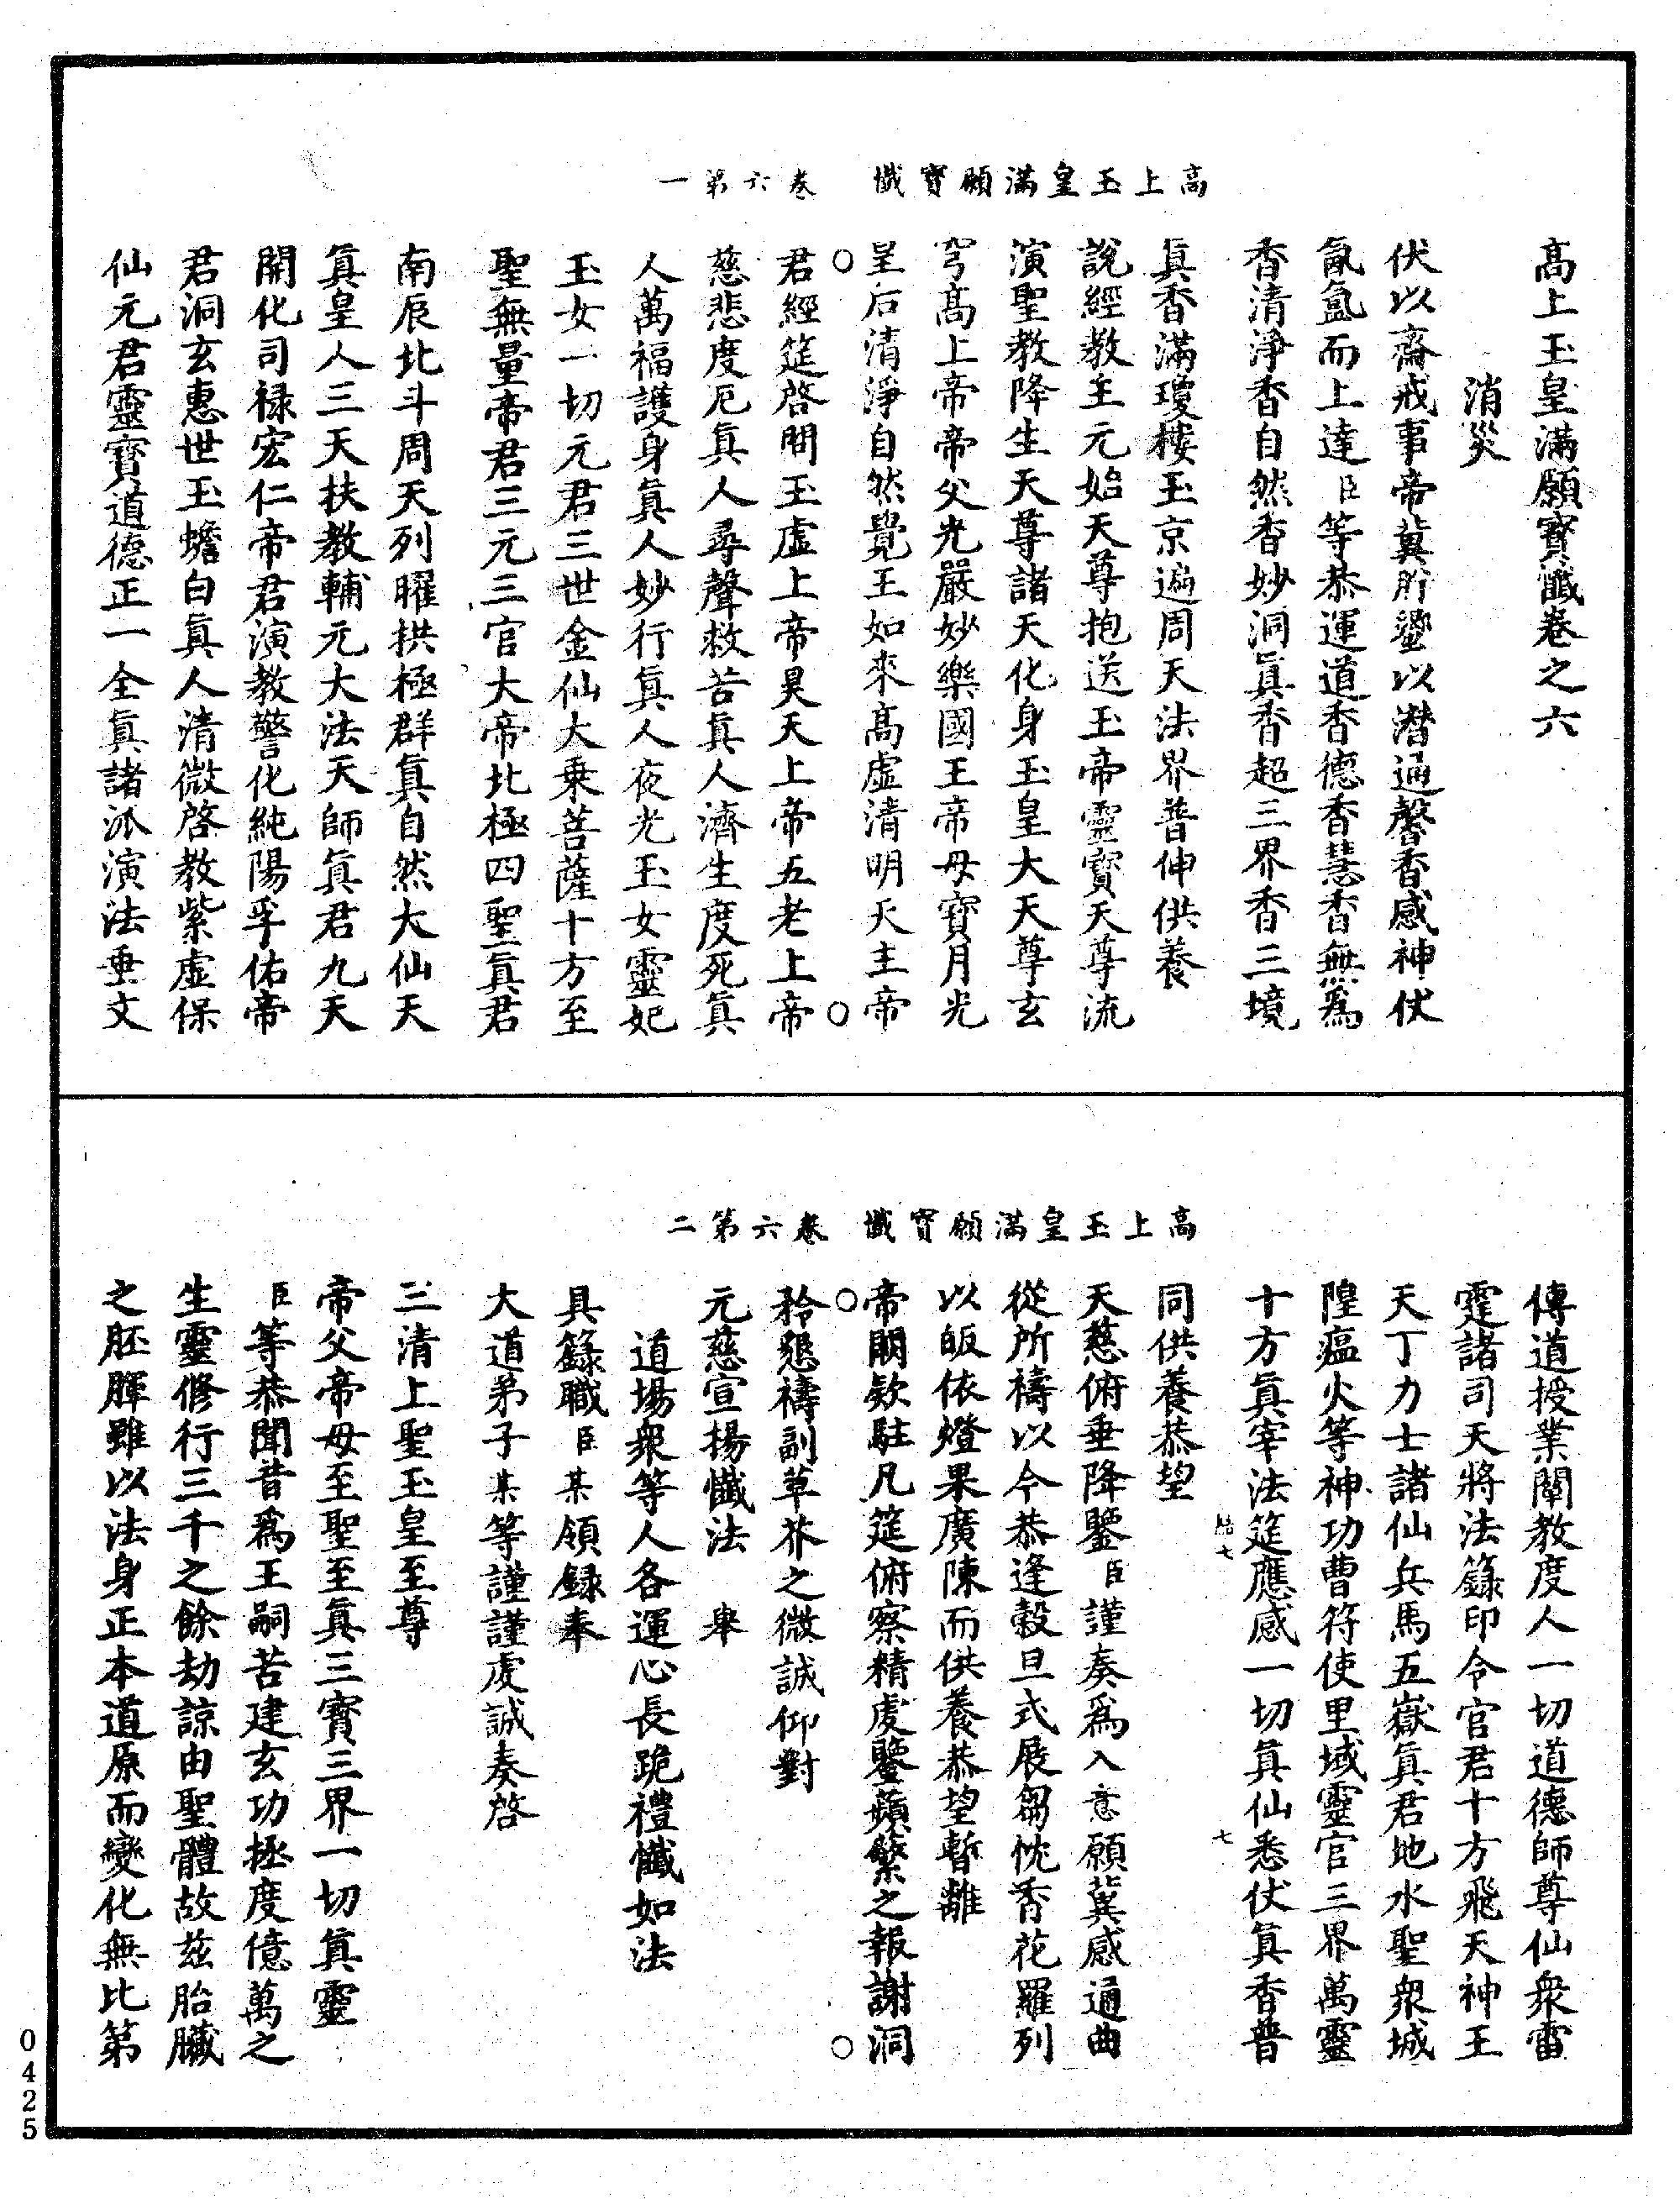 高上玉皇滿願寶懺 卷六第一
高上玉皇滿願寶懺卷之六
消災
伏以齋戒事帝冀肸蠁以潛通馨香感神伏
氤氳而上達臣等恭運道香德香慧香無為
香清淨香自然香妙洞真香超三界香三境
真香滿瓊樓玉京遍周天法界普伸供養
說經教主元始天尊抱送玉帝靈寶天尊流
演聖教降生天尊諸天化身玉皇大天尊玄
穹高上帝帝父光嚴妙樂國王帝母寶月光
皇后清淨自然覺王如來高虛清明天主帝
君經筵啓閉玉虛上帝昊天上帝五老上帝
慈悲度厄真人尋聲救苦真人濟生度死真
人萬福護身真人妙行真人夜光玉女靈妃
玉女一切元君三世金仙大乘菩薩十方至
聖無量帝君三元三官大帝北極四聖真君
南辰北斗周天列曜拱極群真自然大仙天
真皇人三天扶教輔元大法天師真君九天
開化司祿宏仁帝君演教警化純陽孚佑帝
君洞玄惠世玉蟾白真人清微啓教紫虛保
仙元君靈寶道德正一全真諸派演法垂文
高上玉皇滿願寶懺 卷六第二
傳道授業闡教度人一切道德師尊仙眾雷
霆諸司天將法籙印令官君十方飛天神王
天丁力士諸仙兵馬五嶽真君地水聖眾城
隍瘟火等神功曹符使里域靈官三界萬靈
十方真宰法筵應感一切真仙悉伏真香普
同供養恭望
天慈俯垂降鑒臣謹奏為入意願冀感通曲
從所禱以今恭逢穀旦式展芻忱香花羅列
以皈依燈果廣陳而供養恭望暫離
帝闕欵駐凡筵俯察精虔鑒蘋蘩之報謝洞
矜懇禱副草芥之微誠仰對
元慈宣揚懺法 舉
道場眾等人各運心長跪禮懺如法
具籙職臣某領錄奉
大道弟子某等謹謹虔誠奏啓
三清上聖玉皇至尊
帝父帝母至聖至真三寶三界一切真靈
臣等恭聞昔為王嗣苦建玄功拯度億萬之
生靈修行三千之餘劫諒由聖體故茲胎臟
之胚腪雖以法身正本道原而變化無比第
七
0425